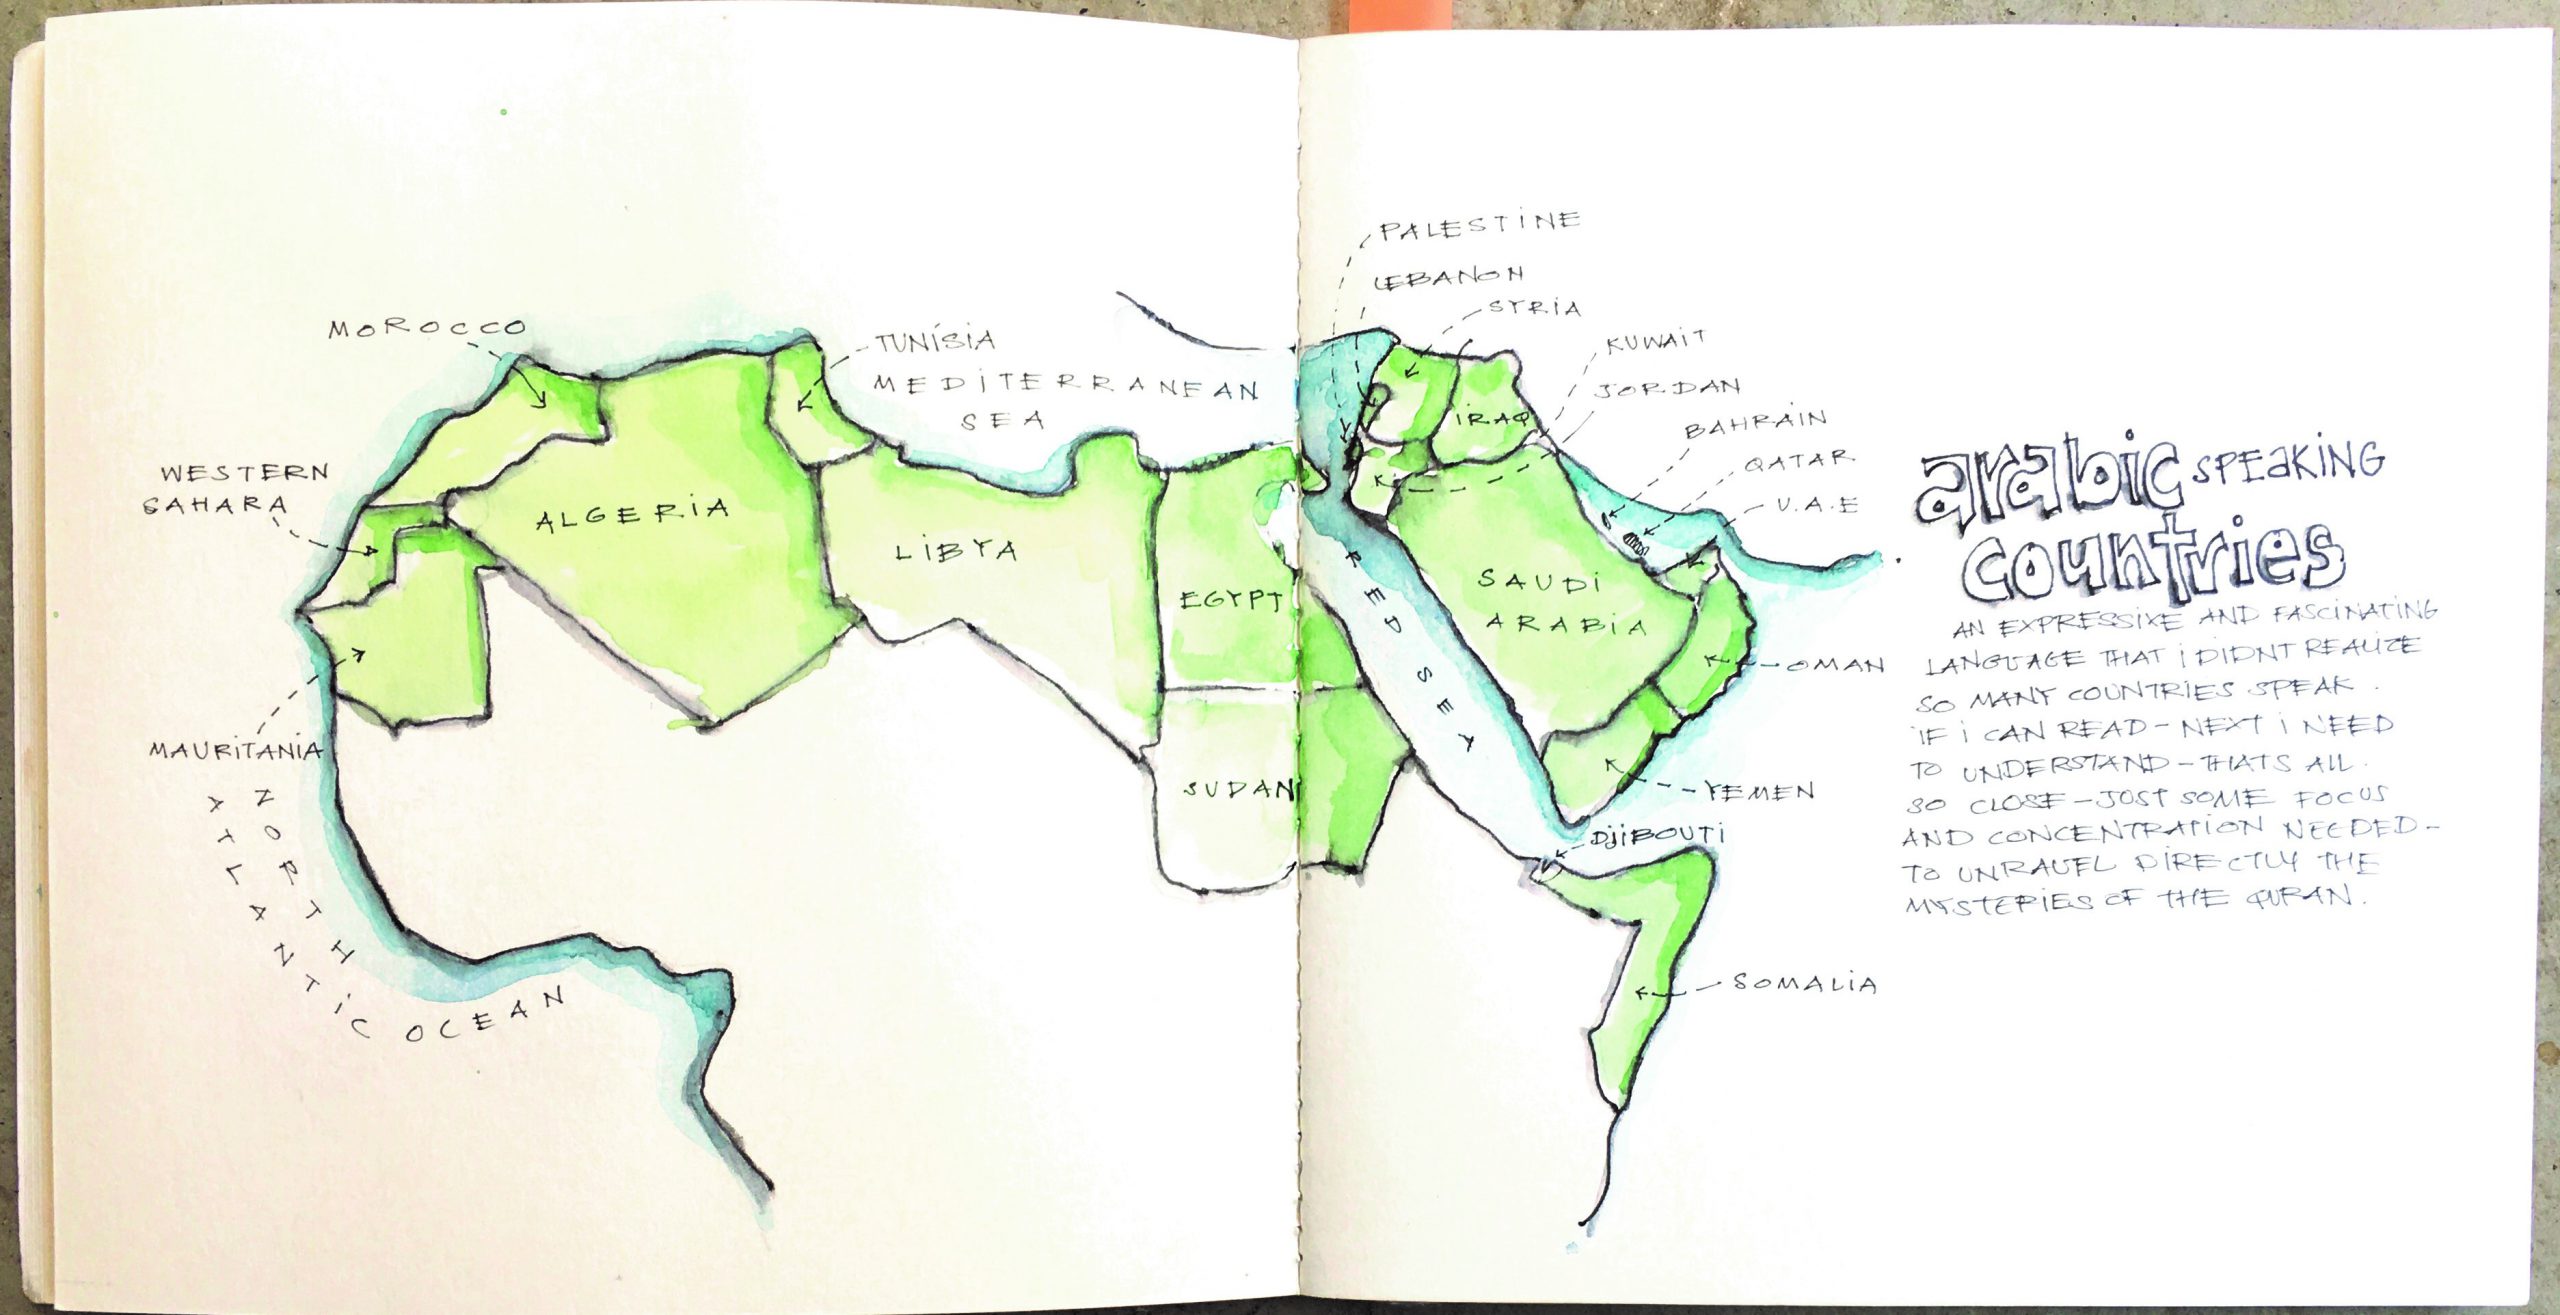 MOROCCO
TUNÍSIA
MEDITERRANEAN
SEA
WESTERN
SAHARA
ALGERIA
LIBYA
EGYPT
SUDAN
MAURITANIA
NORTH
ATLANTIC OCEAN
PALESTINE
LEBANON
SYRIA
KUWAIT
JORDAN
IRAQ
BAHRAIN
QATAR
U.A.E
RED SEA
SAUDI
ARABIA
OMAN
YEMEN
DJIBOUTI
SOMALIA
arabic SPEAKING
countries
AN EXPRESSIVE AND FASCINATING
LANGUAGE THAT I DIDNT REALIZE
SO MANY COUNTRIES SPEAK.
IF I CAN READ - NEXT I NEED
TO UNDERSTAND - THATS ALL.
SO CLOSE - JUST SOME FOCUS
AND CONCENTRATION NEEDED -
TO UNRAVEL DIRECTLY THE
MYSTERIES OF THE QURAN.